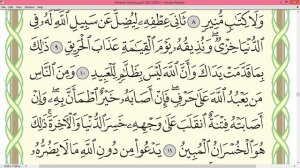 وَلَا كِتَٰبٍ مُّنِيرٍ ٨ ثَانِىَ عِطْفِهِۦ لِيُضِلَّ عَن سَبِيلِ ٱللَّهِ لَهُۥ فِى
ٱلدُّنْيَا خِزْىٌ وَنُذِيقُهُۥ يَوْمَ ٱلْقِيَٰمَةِ عَذَابَ ٱلْحَرِيقِ ٩ ذَٰلِكَ
بِمَا قَدَّمَتْ يَدَاكَ وَأَنَّ ٱللَّهَ لَيْسَ بِظَلَّٰمٍ لِّلْعَبِيدِ ١٠ وَمِنَ ٱلنَّاسِ
مَن يَعْبُدُ ٱللَّهَ عَلَىٰ حَرْفٍ فَإِنْ أَصَابَهُۥ خَيْرٌ ٱطْمَأَنَّ بِهِۦ وَإِنْ
أَصَابَتْهُ فِتْنَةٌ ٱنقَلَبَ عَلَىٰ وَجْهِهِۦ خَسِرَ ٱلدُّنْيَا وَٱلْءَاخِرَةَ ذَٰلِكَ
هُوَ ٱلْخُسْرَانُ ٱلْمُبِينُ ١١ يَدْعُوا۟ مِن دُونِ ٱللَّهِ مَا لَا يَضُرُّهُۥ